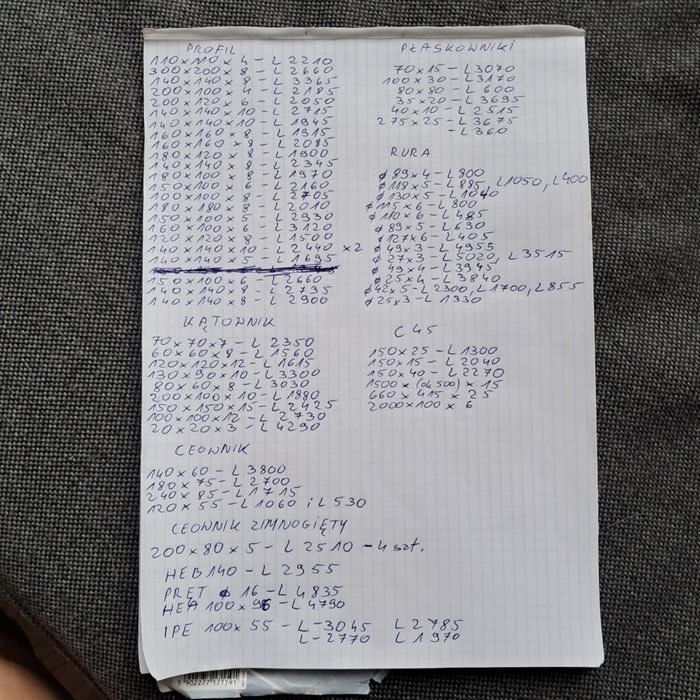 PROFIL
110 x 110 x 4 - L 2210
300 x 200 x 8 - L 2660
140 x 140 x 8 - L 3365
200 x 100 x 4 - L 2185
200 x 120 x 6 - L 2050
140 x 140 x 10 - L 2715
140 x 140 x 10 - L 1945
160 x 160 x 8 - L 1915
160 x 160 x 8 - L 2085
180 x 120 x 8 - L 1900
140 x 140 x 8 - L 2345
180 x 100 x 8 - L 1970
150 x 100 x 6 - L 2160
100 x 100 x 8 - L 2705
180 x 180 x 8 - L 2010
150 x 100 x 5 - L 2930
160 x 100 x 6 - L 3120
120 x 120 x 8 - L 1500
140 x 140 x 10 - L 2440 x 2
140 x 140 x 5 - L 1695
150 x 100 x 6 - L 2660
140 x 140 x 8 - L 2735
140 x 140 x 8 - L 2900
KĄTOWNIK
70 x 70 x 7 - L 2350
60 x 60 x 8 - L 1560
120 x 120 x 12 - L 1615
130 x 90 x 10 - L 3300
80 x 60 x 8 - L 3030
200 x 100 x 10 - L 1880
150 x 150 x 15 - L 2425
100 x 100 x 12 - L 2730
20 x 20 x 3 - L 4290
CEOWNIK
140 x 60 - L 3800
180 x 75 - L 2700
240 x 85 - L 1715
120 x 55 - L 1060 i L 530
CEOWNIK ZIMNOGIĘTY
200 x 80 x 5 - L 2510 - 4 szt.
HEB 140 - L 2955
PRĘT ø 16 - L 4835
HEA 100 x 96 - L 4790
IPE 100 x 55 - L - 3045 L 2785
L - 2770 L 1970
PŁASKOWNIKI
70 x 15 - L 3070
100 x 30 - L 3170
80 x 80 - L 600
35 x 20 - L 3695
40 x 10 - L 2515
275 x 25 - L 3675
- L 360
RURA
ø 89 x 4 - L 800
ø 118 x 5 - L 885, L 1050, L 400
ø 130 x 5 - L 1040
ø 115 x 6 - L 800
ø 110 x 6 - L 485
ø 89 x 5 - L 630
ø 127 x 6 - L 405
ø 49 x 3 - L 4955
ø 27 x 3 - L 5020, L 3515
ø 49 x 4 - L 3945
ø 25 x 4 - L 3840
ø 42 x 5 - L 2300, L 1700, L 855
ø 25 x 3 - L 1330
C 45
150 x 25 - L 1300
150 x 15 - L 2040
150 x 40 - L 2270
1500 x (ok 500) x 15
660 x 415 x 25
2000 x 100 x 6
5 902277 171191